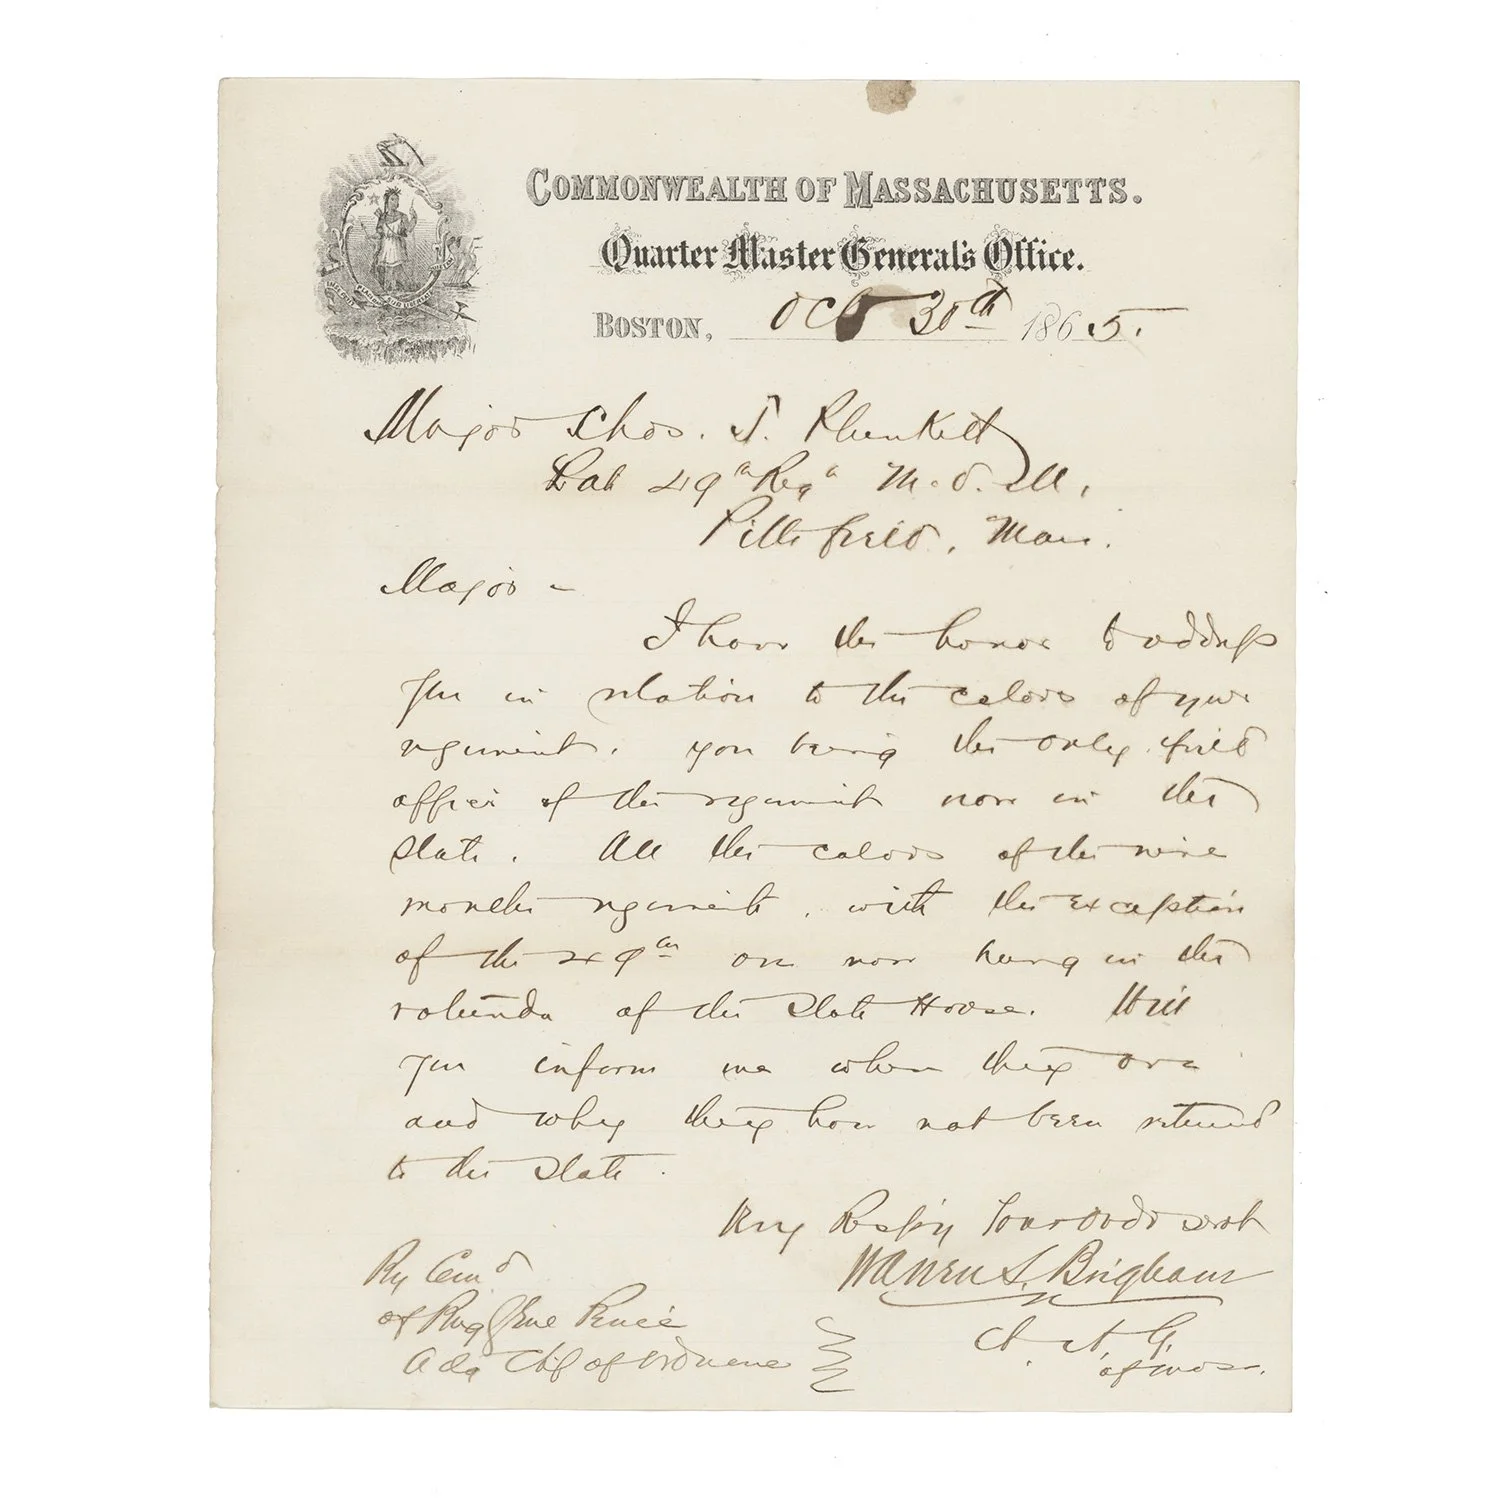 COMMONWEALTH OF MASSACHUSETTS.
Quarter Master General's Office.
BOSTON, Oct 30th 1865.
Major Chas. T. Plunkett
Late 49th Regt M.V.M.
Pittsfield, Mass.
Major –
I have the honor to address
you in relation to the colors of your
regiment. you being the only field
officer of the regiment now in the
State. All the colors of the nine
months regiments, with the exception
of the 49th are now hung in the
rotunda of the State House. Will
you inform me where they are
and why they have not been returned
to the State.
Very Respy Your Obdt Servt
Warren S. Brigham
A. A. G.
of Mass.
By Comd
of Brig Genl Peirce
Actg Chf of Ordnance